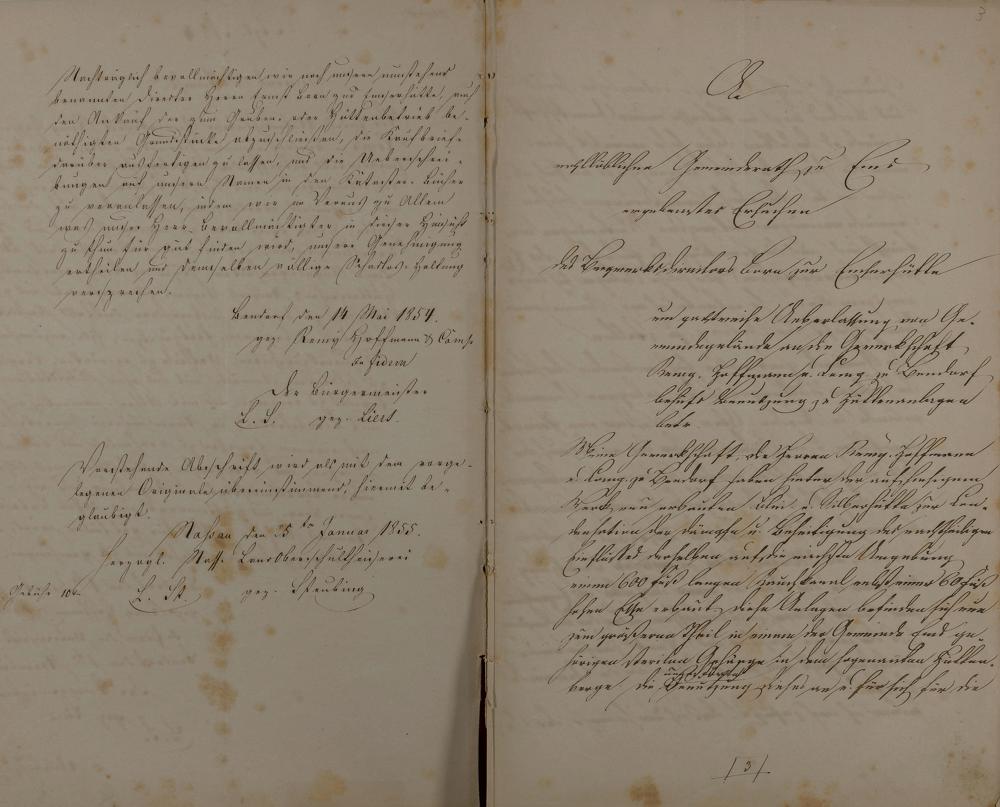 Nachträglich bevollmächtigen wir noch unsern umstehend
benannten Director Herrn Ernst Born zur Emserhütte, auch
den Ankauf der zum Gruben- oder Hüttenbetrieb be-
nöthigten Grundstücke abzuschließen, die Kaufbriefe
darüber ausfertigen zu lassen, und die Ueberschrei-
bungen auf unsern Namen in den Kataster-Bücher
zu veranlassen, indem wir im Voraus zu Allem
was unser Herr Bevollmächtigter in dieser Hinsicht
zu thun für gut finden wird, unsere Genehmigung
ertheilen und demselben völlige Schadlos-Haltung
versprechen.
Bendorf den 14 Mai 1854.
gez. Remy Hoffmann & Comp.
in fidem
Der Bürgermeister
L. S. gez. Liers.
Vorstehende Abschrift wird als mit dem vorge-
legenen Originale übereinstimmend, hiermit be-
glaubigt.
Nassau den 25ten Januar 1855.
Herzogl. Nass. Landoberschultheiserei
Gebühr 10
L. S. gez.
3
An
wohllöblichen Gemeinderath zu Ems
ergebenstes Ersuchen
des Bergwerksdirectors Born zur Emserhütte
um pachtweise Ueberlassung von Ge-
meindegelände an die Gewerkschaft
Remy, Hoffmann u. Comp. zu Bendorf
behufs Benutzung zu Hüttenanlagen
betr.
Meine Gewerkschaft, die Herren Remy, Hoffmann
u. Comp. zu Bendorf haben hinter der auf hiesigem
Werk neu erbauten Blei- u. Silberhütte zur Con-
densation der Dämpfe u. Beseitigung des nachtheiligen
Einflusses derselben auf die nächste Umgebung
einen 600 Fuß langen Rauchkanal nebst einer 60 Fuß
hohen Esse erbaut, diese Anlagen befinden sich nun
zum größeren Theil in einem der Gemeinde Ems ge-
hörigen sterilen Gehänge in dem sogenannten Hütten-
berge, die Benutzung dieses an u. für sich für die
/3/